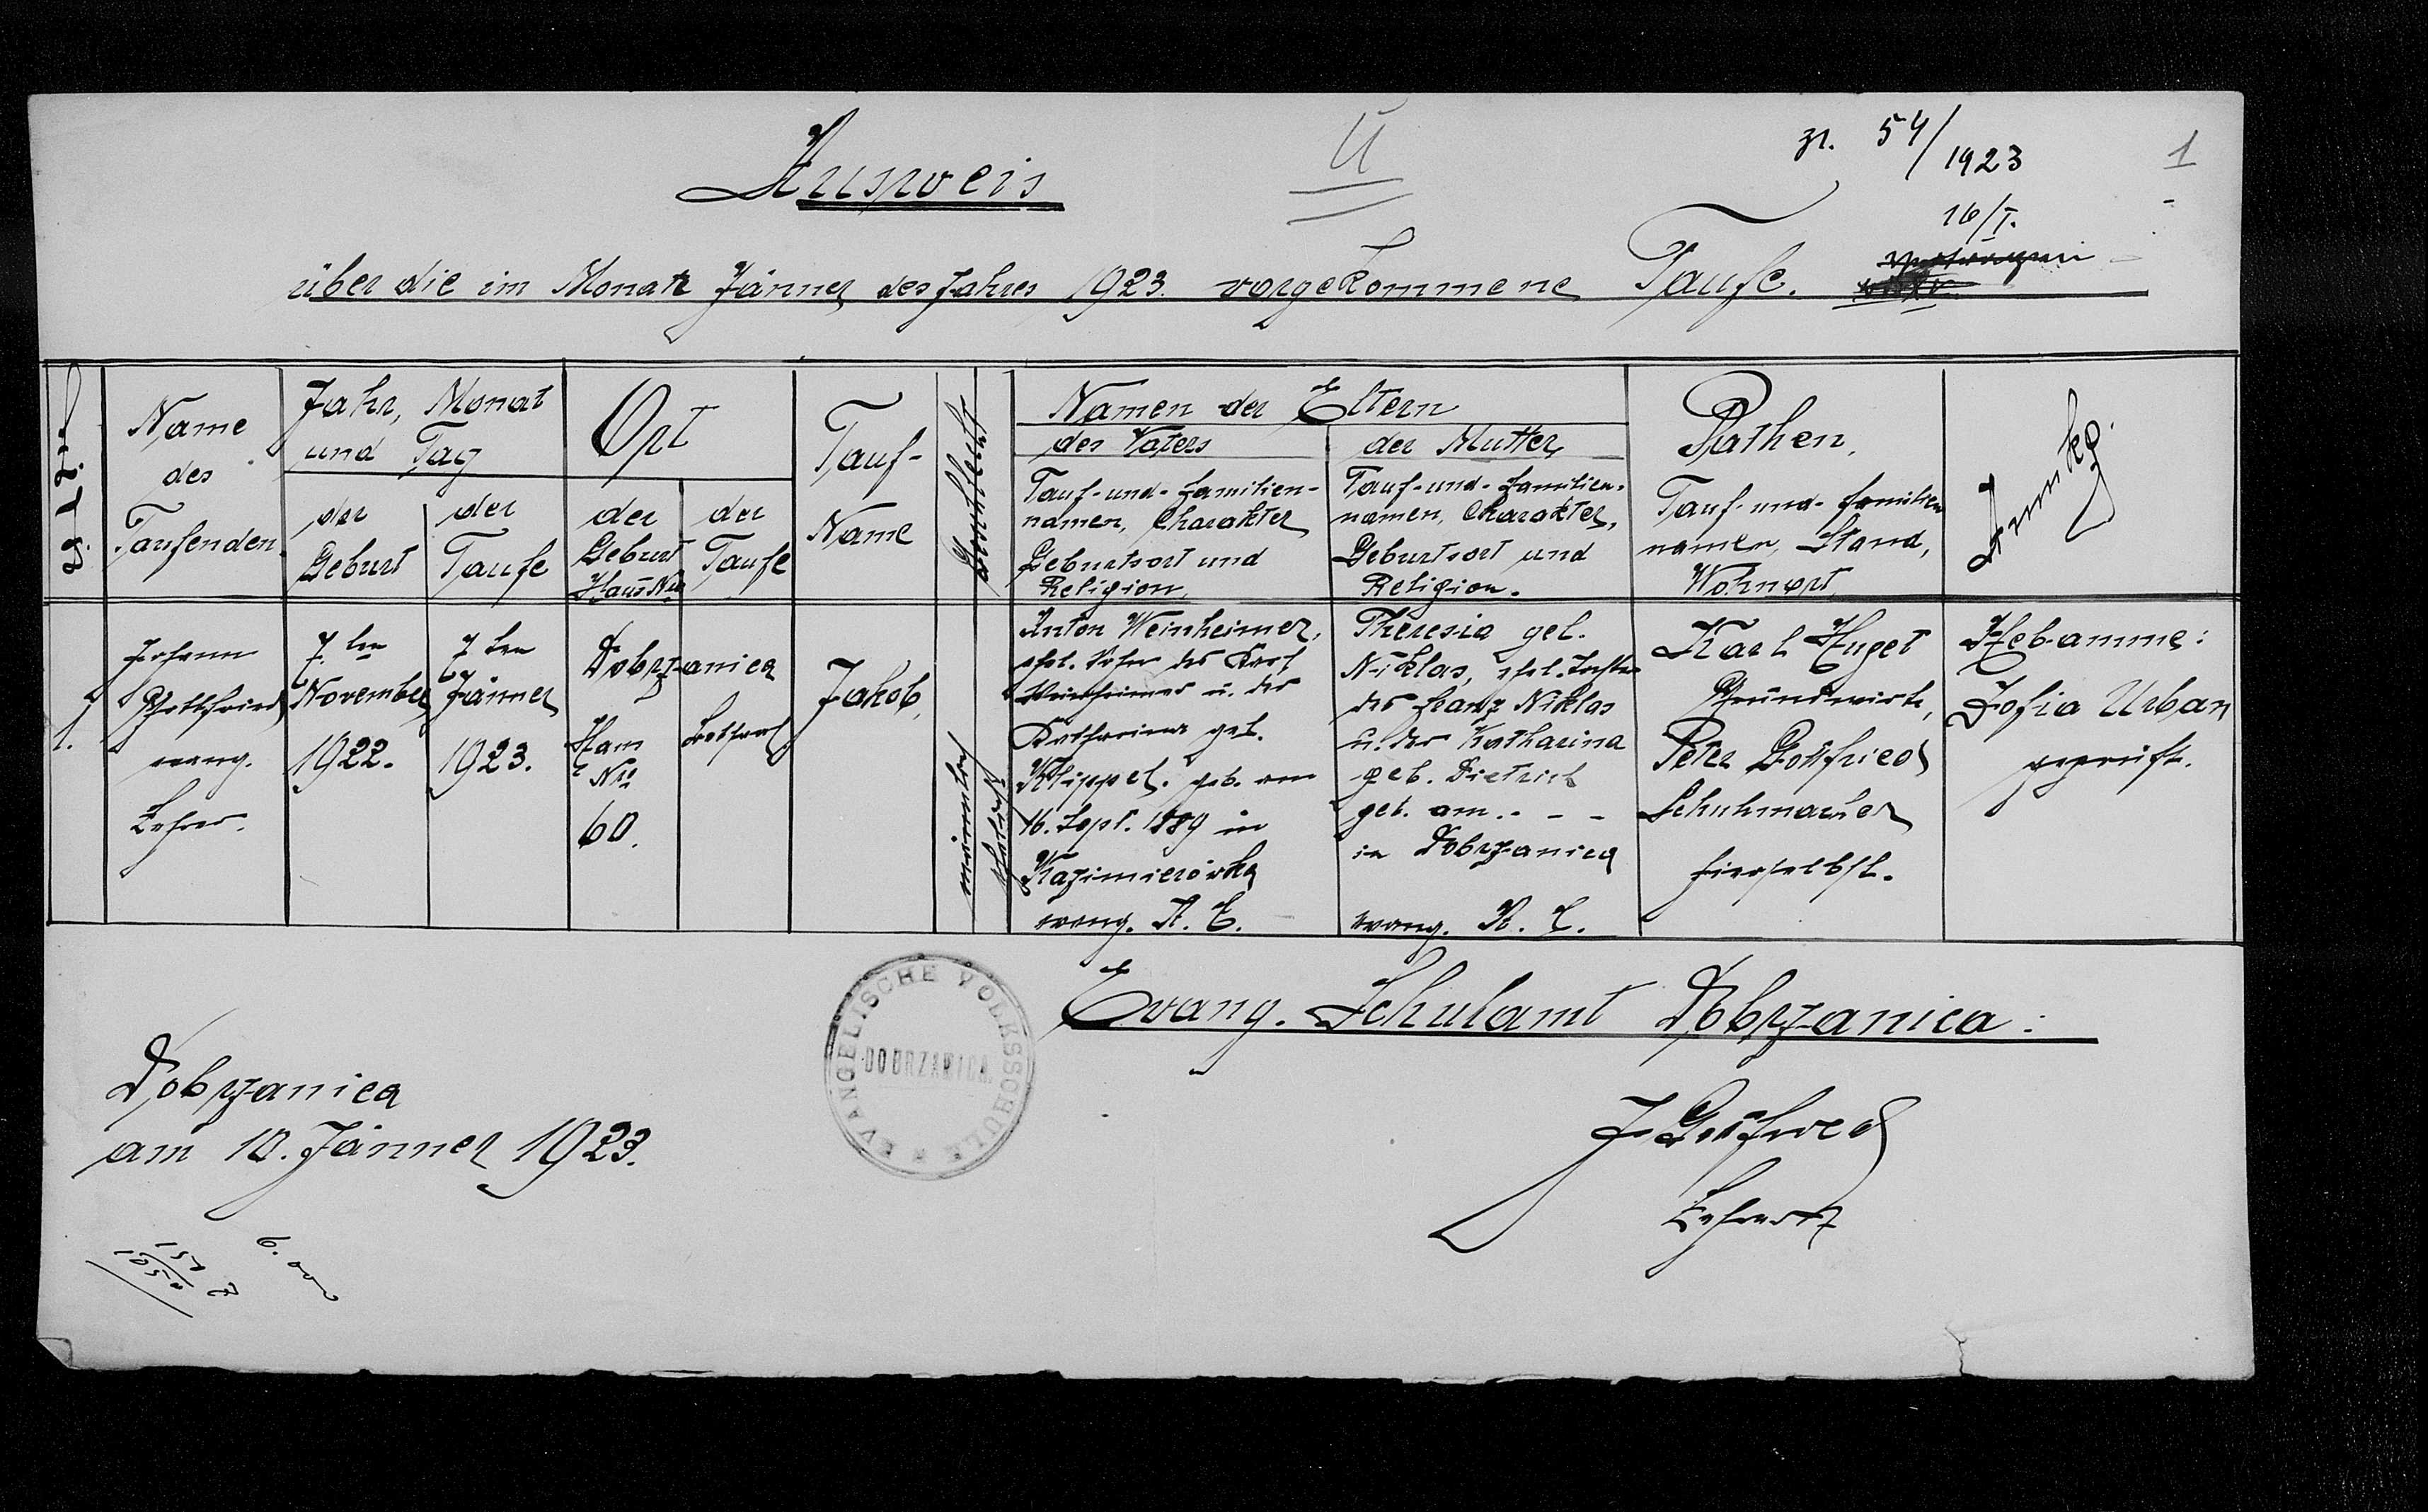 Ausweis
Ü
zl. 54/1923
16/I.
1
über die im Monate Jänner des Jahres 1923 vorgekommene Taufe.
Name
des
Taufenden
Jahr, Monat
und Tag
der
Geburt
der
Taufe
Ort
der
Geburt
Haus-Nro
der
Taufe
Tauf-
Name
Geschlecht
Namen der Eltern
des Vaters
Tauf-und-Familien-
namen, Charakter
Geburtsort und
Religion.
der Mutter
Tauf-und-Familien-
namen, Charakter,
Geburtsort und
Religion.
Pathen,
Tauf-und-Familien
namen, Stand,
Wohnort
Anmkg.
1.
Johann
Gottfried
evang.
Lehrer.
7ten
November
1922.
7ten
Jänner
1923.
Dobrzanica
Haus
Nro
60.
Bethaus
Jakob,
männlich
ehelich
Anton Weinheimer,
ehel. Sohn des Karl
Weinheimer u. der
Katharina geb.
Klippel. geb. am
16. Sept. 1889 in
Kazimierówka
evang. A. C.
Theresia geb.
Niklas, ehel. Tochter
des Franz Niklas
u. der Katharina
geb. Dietrich
geb. am . - -
in Dobrzanica
evang. A. C.
Karl Huget
Grundwirth,
Peter Gottfried
Schuhmacher
hierselbst.
Hebamme:
Zofia Urban
geprüft.
Evang. Schulamt Dobrzanica:
EVANGELISCHE VOLKSSCHULE
DOBRZANICA
Dobrzanica
am 10. Jänner 1923.
J Gottfried
Lehrer